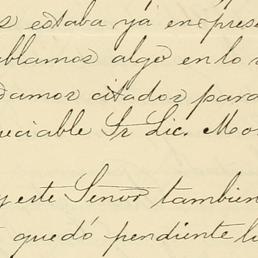 s estaba ya en prese
blamos algo en lo
damos citados para
uciable Sr Lic. Mo
y este Señor tambien
quedó pendiente la